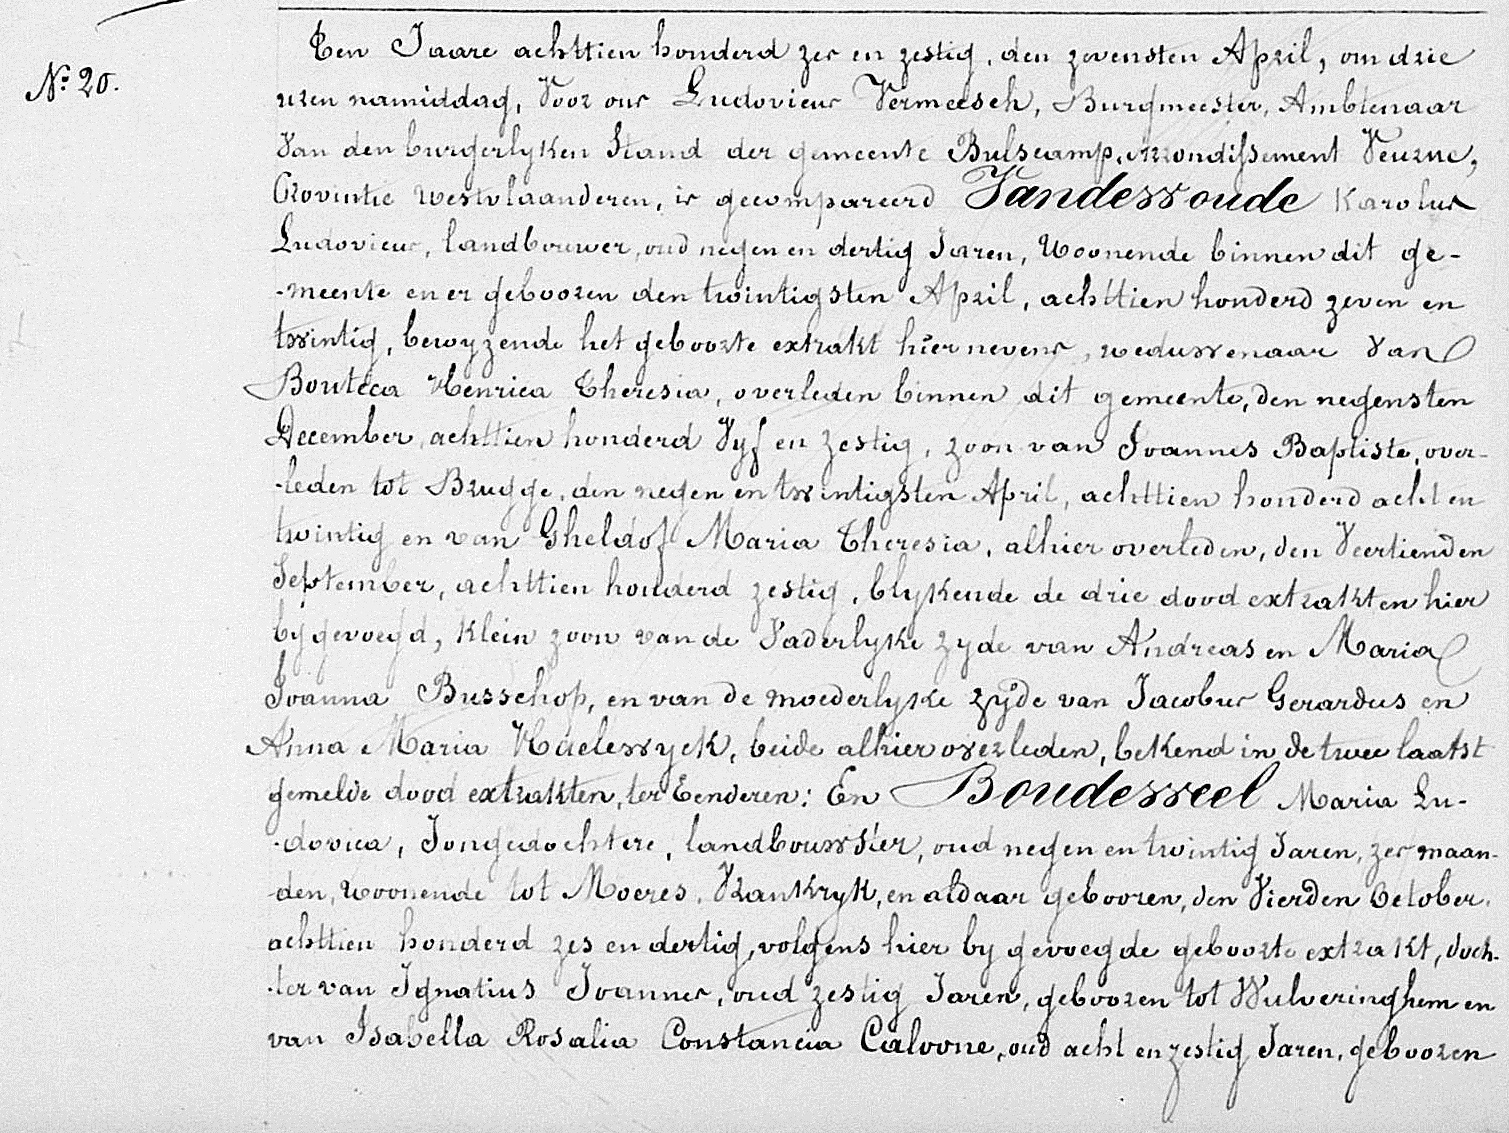 Nº 20.
Ten Jaare achttien honderd zes en zestig, den zevensten April, om drie
uren namiddag, Voor ons Ludovicus Vermeesch, Burgmeester, Ambtenaar
Van den burgerlyken Stand der gemeente Bulscamp, arrondissement Veurne,
Provintie westvlaanderen, is gecompareerd Vandewoude Karolus
Ludovicus, landbouwer, oud negen en dertig Jaren, Woonende binnen dit ge-
-meente en er gebooren den twintigsten April, achttien honderd zeven en
twintig, bewyzende het geboorte extrakt hier nevens, weduwenaar Van
Bouteca Henrica Theresia, overleden binnen dit gemeente, den negensten
December, achttien honderd Vyf en zestig, zoon van Joannes Baptiste, over-
-leden tot Brugge, den negen en twintigsten April, achttien honderd acht en
twintig en van Gheldof Maria Theresia, alhier overleden, den Veertienden
September, achttien honderd zestig, blykende de drie dood extrakten hier
bygevoegd, Klein zoon van de Vaderlyke zyde van Andreas en Maria
Joanna Busschop, en van de moederlyke zyde van Jacobus Gerardus en
Anna Maria Haelewyck, beide alhier overleden, bekend in de twee laatst
gemelde dood extrakten, ter Eenderen: En Boudeweel Maria Lu-
-dovica, Jongedochtere, landbouwster, oud negen en twintig Jaren, zes maan-
-den, Woonende tot Moeres, Vrankryk, en aldaar gebooren, den Vierden October,
achttien honderd zes en dertig, volgens hier by gevoegde geboorte extrakt, doch-
-ter van Ignatius Joannes, oud zestig Jaren, gebooren tot Wulveringhem en
van Isabella Rosalia Constancia Caloone, oud acht en zestig Jaren, gebooren